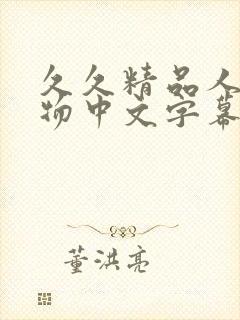 久久精品人
物中文字幕
董洪亮